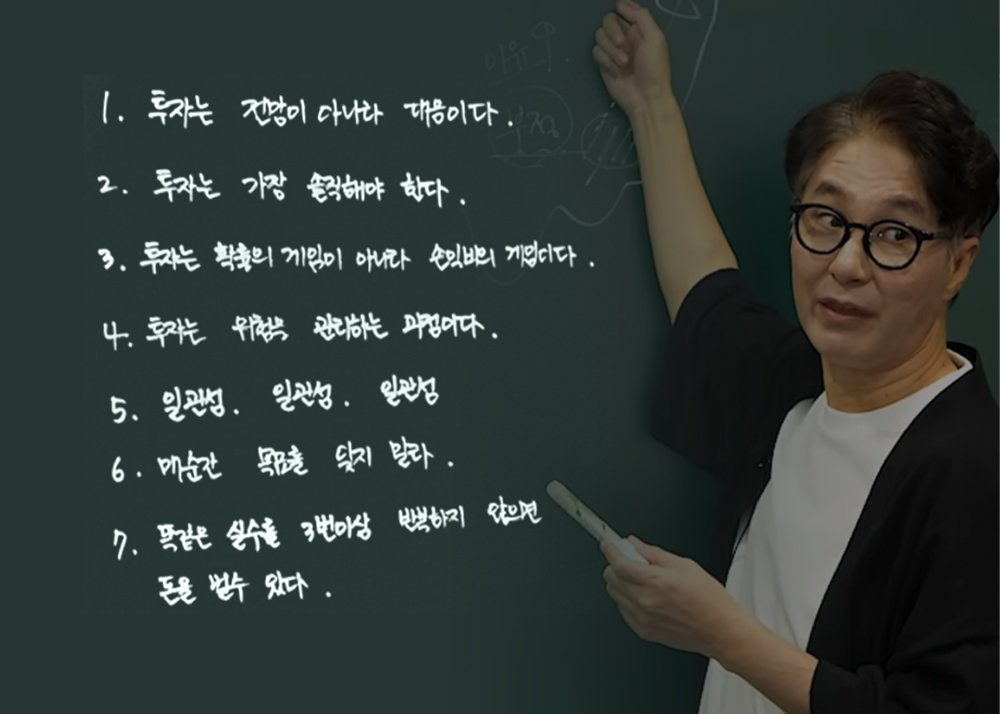 1. 투자는 전망이 아니라 대응이다.
2. 투자는 가장 솔직해야 한다.
3. 투자는 확률의 게임이 아니라 손익비의 게임이다.
4. 투자는 위험을 관리하는 과정이다.
5. 일관성. 일관성. 일관성
6. 매순간 목표를 잊지 말라.
7. 똑같은 실수를 3번이상 반복하지 않으면
돈을 벌수 있다.